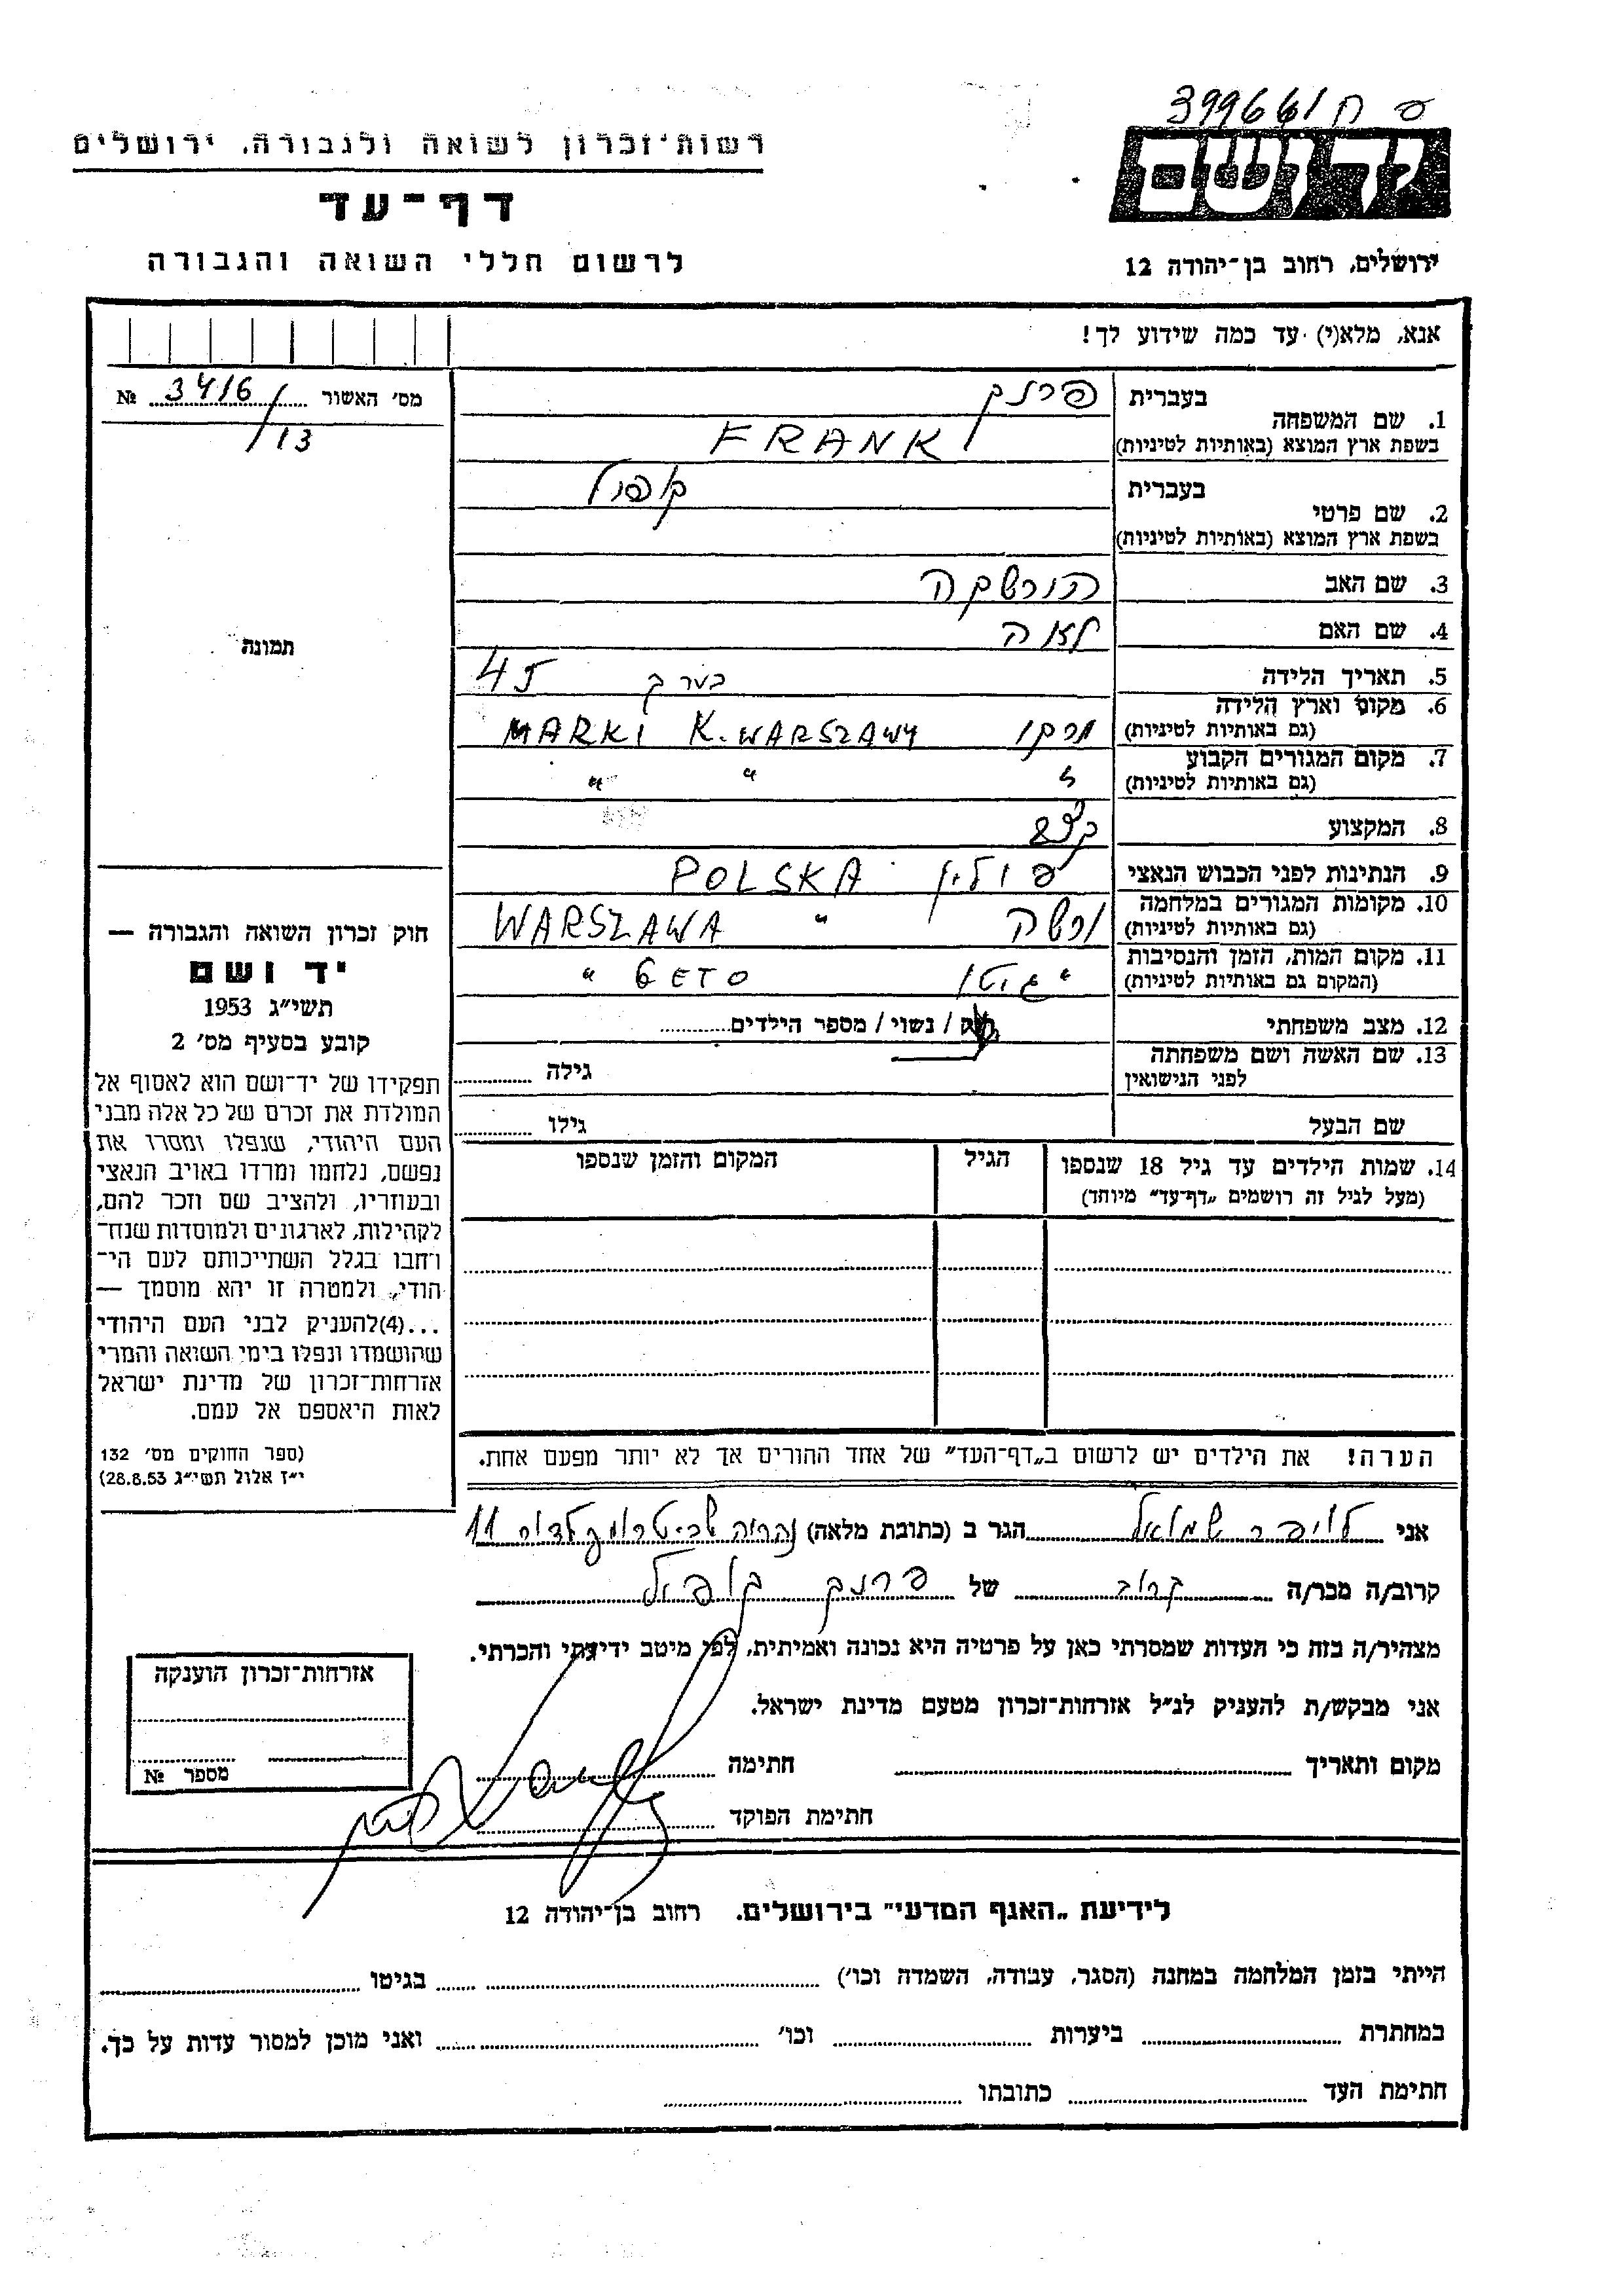 פ ח 399661/
יד ושם
ירושלים, רחוב בן־יהודה 12
רשות־זכרון לשואה ולגבורה, ירושלים
דף־עד
לרשום חללי השואה והגבורה
אנא, מלא(י) עד כמה שידוע לך!
מס' האשור 3416/13 №
1. שם המשפחה בעברית פרנק
בשפת ארץ המוצא (באותיות לטיניות) FRANK
2. שם פרטי בעברית קופל
בשפת ארץ המוצא (באותיות לטיניות)
3. שם האב
4. שם האם לאה
5. תאריך הלידה בערך 45
6. מקום וארץ הלידה (גם באותיות לטיניות) מרקי MARKI K. WARSZAWY
7. מקום המגורים הקבוע (גם באותיות לטיניות) " " "
8. המקצוע קצב
9. הנתינות לפני הכבוש הנאצי פולין POLSKA
10. מקומות המגורים במלחמה (גם באותיות לטיניות) ורשה " WARSZAWA
11. מקום המות, הזמן והנסיבות (המקום גם באותיות לטיניות) " גיטו GETO "
12. מצב משפחתי / נשוי / מספר הילדים
13. שם האשה ושם משפחתה לפני הנישואין גילה
שם הבעל גילו
14. שמות הילדים עד גיל 18 שנספו הגיל המקום והזמן שנספו
(מעל לגיל זה רושמים „דף־עד" מיוחד)
הערה! את הילדים יש לרשום ב„דף־העד" של אחד ההורים אך לא יותר מפעם אחת.
תמונה
חוק זכרון השואה והגבורה —
יד ושם
תשי"ג 1953
קובע בסעיף מס' 2
תפקידו של יד־ושם הוא לאסוף אל
המולדת את זכרם של כל אלה מבני
העם היהודי, שנפלו ומסרו את
נפשם, נלחמו ומרדו באויב הנאצי
ובעוזריו, ולהציב שם וזכר להם,
לקהילות, לארגונים ולמוסדות שנח־
רחבו בגלל השתייכותם לעם הי־
הודי, ולמטרה זו יהא מוסמך —
...(4)להעניק לבני העם היהודי
שהושמדו ונפלו בימי השואה והמרי
אזרחות־זכרון של מדינת ישראל
לאות היאספם אל עמם.
(ספר החוקים מס' 132
י"ז אלול תשי"ג 28.8.53)
אני לויבר שמואל הגר ב (כתובת מלאה) נהריה 11
קרוב/ה מכר/ה קרוב של פרנק קופל
מצהיר/ה בזה כי העדות שמסרתי כאן על פרטיה היא נכונה ואמיתית, לפי מיטב ידיעתי והכרתי.
אני מבקש/ת להעניק לנ"ל אזרחות־זכרון מטעם מדינת ישראל.
מקום ותאריך חתימה
חתימת הפוקד
אזרחות־זכרון הוענקה
מספר №
לידיעת „האגף המדעי" בירושלים. רחוב בן־יהודה 12
הייתי בזמן המלחמה במחנה (הסגר, עבודה, השמדה וכו') בגיטו
במחתרת ביערות וכו' ואני מוכן למסור עדות על כך.
חתימת העד כתובתו